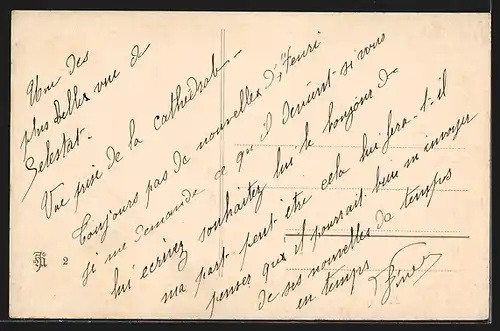 Une des
plus belles vue de
Selestat -
Vue prise de la cathedrale -
Toujours pas de nouvelles d'Henri
je me demande ce qu'il devient - si vous
lui ecrivez souhaitez lui le bonjour de
ma part peut-être cela lui fera-t-il
penser qu'il pourrait bien m'envoyer
de ses nouvelles de temps
en temps
2